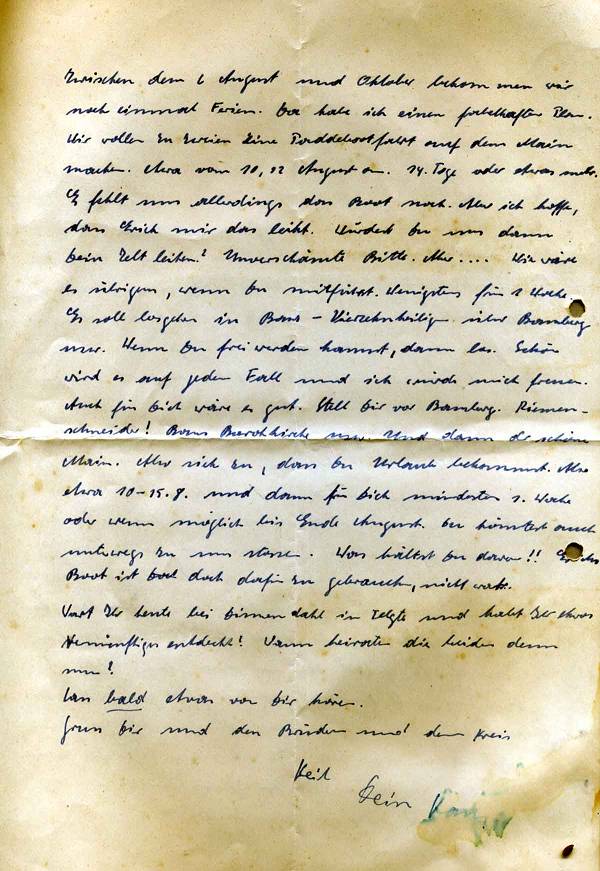 Zwischen dem 6 August und Oktober bekommen wir
noch einmal Ferien. Da habe ich einen fabelhaften Plan.
Wir wollen zu zweien eine Paddelbootfahrt auf dem Main
machen. Etwa vom 10, 12 August an. 14. Tage oder etwas mehr.
Es fehlt uns allerdings das Boot noch. Aber ich hoffe,
dass Erich mir das leiht. Würdest Du uns dann
Dein Zelt leihen? Unverschämte Bitte. Aber .... Wie wäre
es übrigens, wenn Du mitführst. Wenigstens für 1 Woche.
Es soll losgehen in Banz - Vierzehnheiligen über Bamberg
usw. Wenn Du frei werden kannst, dann los. Schön
wird es auf jeden Fall und ich würde mich freuen.
Auch für Dich wäre es gut. Stell Dir vor Bamberg. Riemen-
schneider! Banz Barockkirche usw. Und dann der schöne
Main. Also sieh zu, dass Du Urlaub bekommst. Also
etwa 10-15.8. und dann für Dich mindestens 1. Woche
oder wenn möglich bis Ende August. Du könntest auch
unterwegs zu uns stossen. Was hältst Du davon!!
Boot ist doch dafür zu gebrauchen, nicht wahr.
Wart Ihr heute bei in Telgte und habt Ihr etwas
Vernünftiges entdeckt! Wann heiraten die beiden denn
nun!
Lass bald etwas von Dir hören.
Gruss Dir und den Brüdern und dem Kreis
Heil
Dein